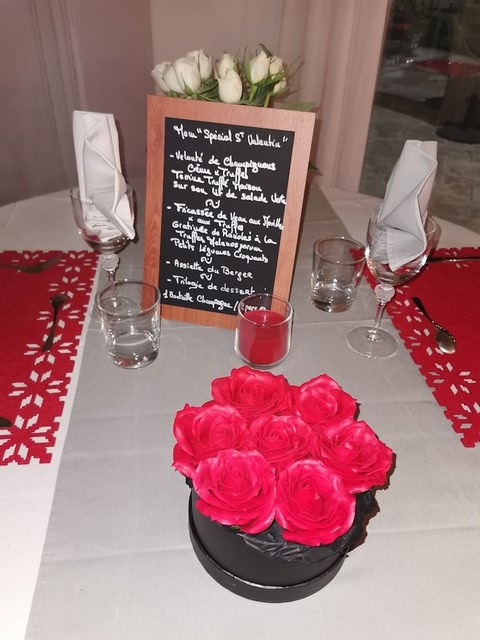 Menu "Spécial St Valentin"
- Velouté de Champignons
Crème & Truffes
Terrine Truffée Maison
sur son lit de salade Verte
- Fricassée de Veau aux Morilles
& aux Truffes
Gratinée de Ravioles à la
Truffes Melanosporum
Petits Légumes Croquants
- Assiette du Berger
- Trilogie de dessert
1 Bouteille Champagne /